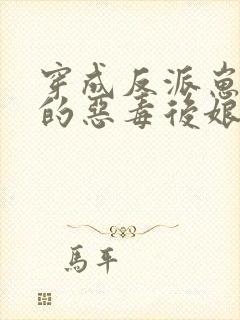 穿成反派崽
的惡毒後娘
馬平